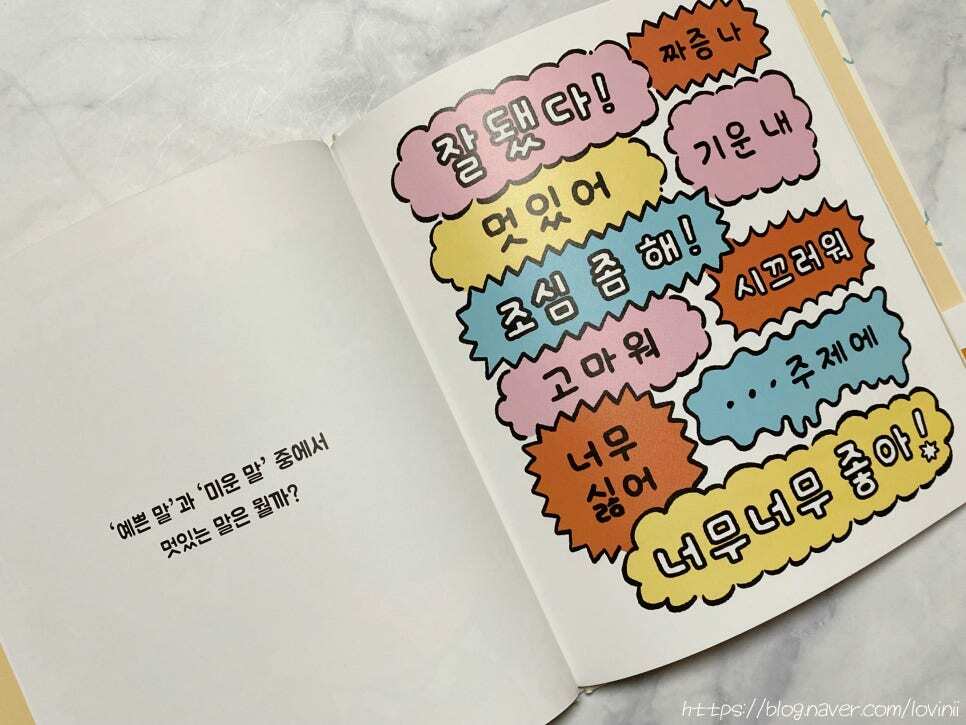 ‘예쁜 말’과 ‘미운 말’ 중에서
멋있는 말은 뭘까?
잘됐다!
짜증 나
기운 내
멋있어
조심 좀 해!
시끄러워
고마워
...주제에
너무
싫어
너무너무 좋아!
https://blog.naver.com/lovinii